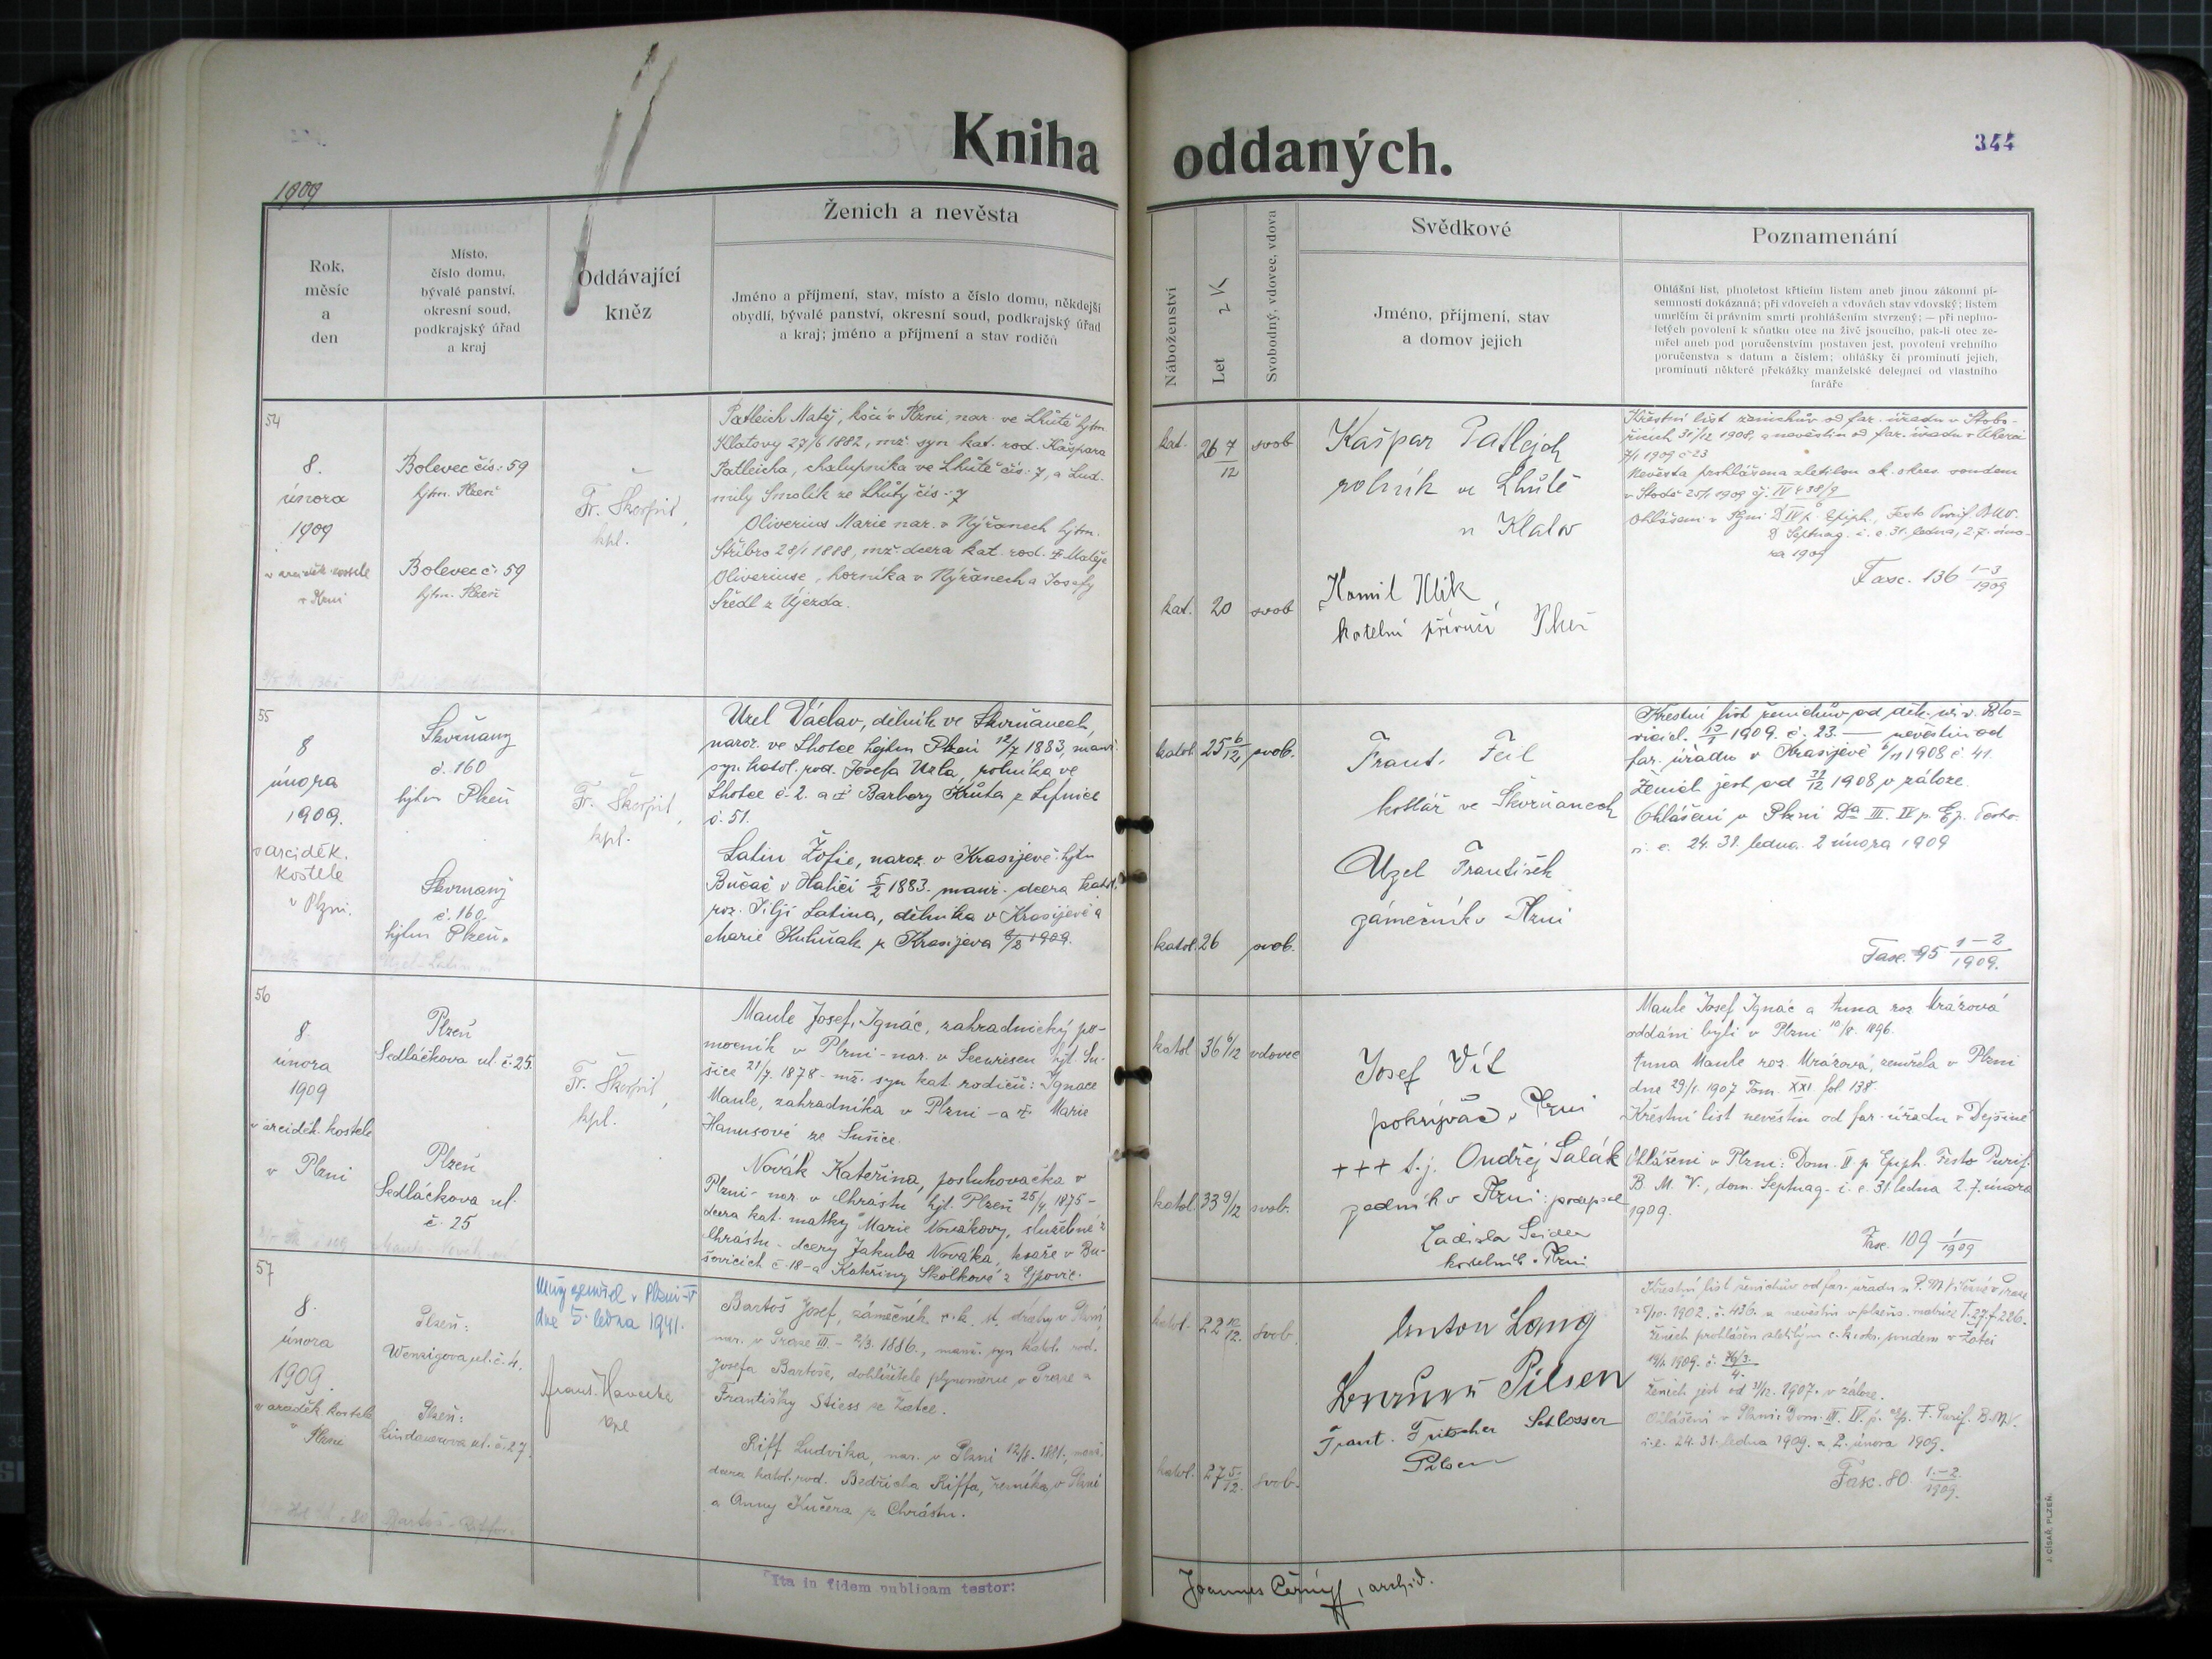 Kniha oddaných.
344
1909
Rok,
měsíc
a
den
Místo,
číslo domu,
bývalé panství,
okresní soud,
podkrajský úřad
a kraj
Oddávající
kněz
Ženich a nevěsta
Jméno a příjmení, stav, místo a číslo domu, někdejší
obydlí, bývalé panství, okresní soud, podkrajský úřad
a kraj; jméno a příjmení a stav rodičů
Náboženství
Let
Svobodný, vdovec, vdova
Svědkové
Jméno, příjmení, stav
a domov jejich
Poznamenání
Ohlášní list, plnoletost křticím listem aneb jinou zákonní pí-
semností dokázaná; při vdovcích a vdovách stav vdovský; listem
umrlčím či právním smrti prohlášením stvrzený; — při neplno-
letých povolení k sňatku otce na živě jsoucího, pak-li otec ze-
mřel aneb pod poručenstvím postaven jest, povolení vrchního
poručenstva s datum a číslem; ohlášky či prominutí jejich,
prominutí některé překážky manželské delegací od vlastního
faráře
54
8.
února
1909
v arciděk. kostele
v Plzni
Bolevec čís: 59
hjtm. Plzeň
Bolevec č. 59
hjtm. Plzeň
Fr. Škorpil,
kpl.
Patleich Matěj, kočí v Plzni, nar. ve Lhůtě hjtm.
Klatovy 27/6 1882, mž. syn kat. rod. Kašpara
Patleicha, chalupníka ve Lhůtě čís: 7, a Lud-
mily Smolík ze Lhůty čís: 7
Oliverius Marie nar. v Nýřanech hjtm.
Stříbro 28/1 1888, mž. dcera kat. rod. Matěje
Oliveriuse, horníka v Nýřanech a Josefy
Šredl z Újezda.
kat. 26 7/12 svob
kat. 20 svob
Kašpar Patlejch
rolník ve Lhůtě
u Klatov
Kamil Klik
kotelní Plzeň
Křestní list ženichův od far. úřadu v
31/12 1908, a nevěstin od far. úřadu v
7/1 1909 č 23
Nevěsta prohlášena zletilou ck. okres. soudem
v Stodě 25/1 1909
Ohlášeni v Plzni IV p. Epiph., Festo Purif. B.M.V.
Septuag. i. e. 31. ledna, 2.7. úno-
ra 1909
Fasc. 136 1-3/1909
55
8
února
1909.
v arciděk.
kostele
v Plzni.
Skvrňany
č. 160
hjtm Plzeň
Skvrňany
č. 160.
hjtm Plzeň.
Fr. Škorpil,
kpl.
Uzel Václav, dělník ve Skvrňanech,
naroz. ve Lhotce hejtm Plzeň 12/7 1883, manž.
syn katol. rod. Josefa Uzla, rolníka ve
Lhotce č. 2. a Barbory Krůta z
č. 51.
Latin Žofie, naroz. v Krasijevě hjtm
Bučač v Haliči 5/2 1883. manž. dcera katol.
roz. Latina, dělníka v Krasijevě a
Marie Kuhňak z Krasijeva
katol. 25 6/12 svob.
katol. 26 svob.
Frant. Feil
kotlář ve Skvrňanech
Uzel František
zámečník v Plzni
Křestní list ženichův od děk. úř. v Blo-
vicích 1909. č. 23. — nevěstin od
far. úřadu v Krasijevě 6/11 1908 č 41.
Ženich jest od 31/12 1908 v záloze.
Ohlášeni v Plzni Da III. IV p. Ep. Festo.
i. e. 24. 31. ledna. 2 února 1909
Fasc. 95 1-2/1909.
56
8
února
1909
v arciděk. kostele
v Plzni
Plzeň
Sedláčkova ul. č. 25.
Plzeň
Sedláčkova ul.
č. 25
Fr. Škorpil,
kpl.
Maule Josef, Ignác, zahradnický po-
mocník v Plzni - nar. v Seewiesen hjt. Su-
šice 21/7. 1878 - mž. syn kat. rodičů: Ignace
Maule, zahradníka v Plzni - a Marie
Hanusové ze Sušice.
Novák Kateřina, posluhovačka v
Plzni - nar. v Chrástu hjt. Plzeň 25/4. 1875 -
dcera kat. matky Marie Novákovy, služebné z
Chrástu - dcery Jakuba Nováka, kováře v Bu-
šovicích č. 18 - a Kateřiny Skolkové z Ejpovic.
katol. 36 6/12 vdovec
katol. 33 9/12 svob.
Josef Vít
pokrývač v Plzni
+++ t.j. Ondřej Salák
zedník v Plzni: podepsal
Ladislav
kostelník v Plzni
Maule Josef Ignác a Anna roz. Mrázová
oddáni byli v Plzni 10/8. 1896.
Anna Maule roz. Mrázová, zemřela v Plzni
dne 29/1. 1907 Tom. XXI fol. 138.
Křestní list nevěstin od far. úřadu v Dejšině
Ohlášeni v Plzni: Dom. IV p Epiph. Festo Purif.
B. M. V., dom. Septuag. i. e. 31 ledna 2. 7. února
1909.
Fasc. 109 1/1909
57
8.
února
1909.
v arciděk. kostele
v Plzni
Plzeň:
Wenzigova ul. č. 4.
Plzeň:
Lindauerova ul. č. 27.
Muž zemřel v Plzni-V
dne 5. ledna 1941.
Frant. Havelka
kpl
Bartoš Josef, zámečník c. k. st. dráhy v Plzni,
nar. v Praze III - 2/3. 1886., manž. syn katol. rod.
Josefa Bartoše, dohlížitele plynoměrů v Praze a
Františky Stiess ze Žatce.
Riff Ludvika, nar. v Plzni 12/8. 1881., manž.
dcera katol. rod. Bedřicha Riffa, řezníka v Plzni
a Anny Kučera z Chrástu.
katol. 22 svob.
katol. 27 5/12. svob.
Anton Lang
Pilsen
Frant. Fritscher Schlosser
Pilsen
Křestní list ženichův od far. úřadu u P. M. Vítězné v Praze
1902. č. 436. a nevěstin v plzeňs. matrice T. 27. f 226.
Ženich prohlášen zletilým c. k. okr. soudem v Žatci
1909. č.
Ženich jest od 31/12. 1907. v záloze.
Ohlášeni v Plzni: Dom. III. IV. p. Ep. F. Purif. B. M. V.
i. e. 24. 31. ledna 1909. a 2. února 1909.
Fasc. 80. 1-2./1909.
Ita in fidem publicam testor:
Joannes Černý, archid.
J. CÍSAŘ, PLZEŇ.